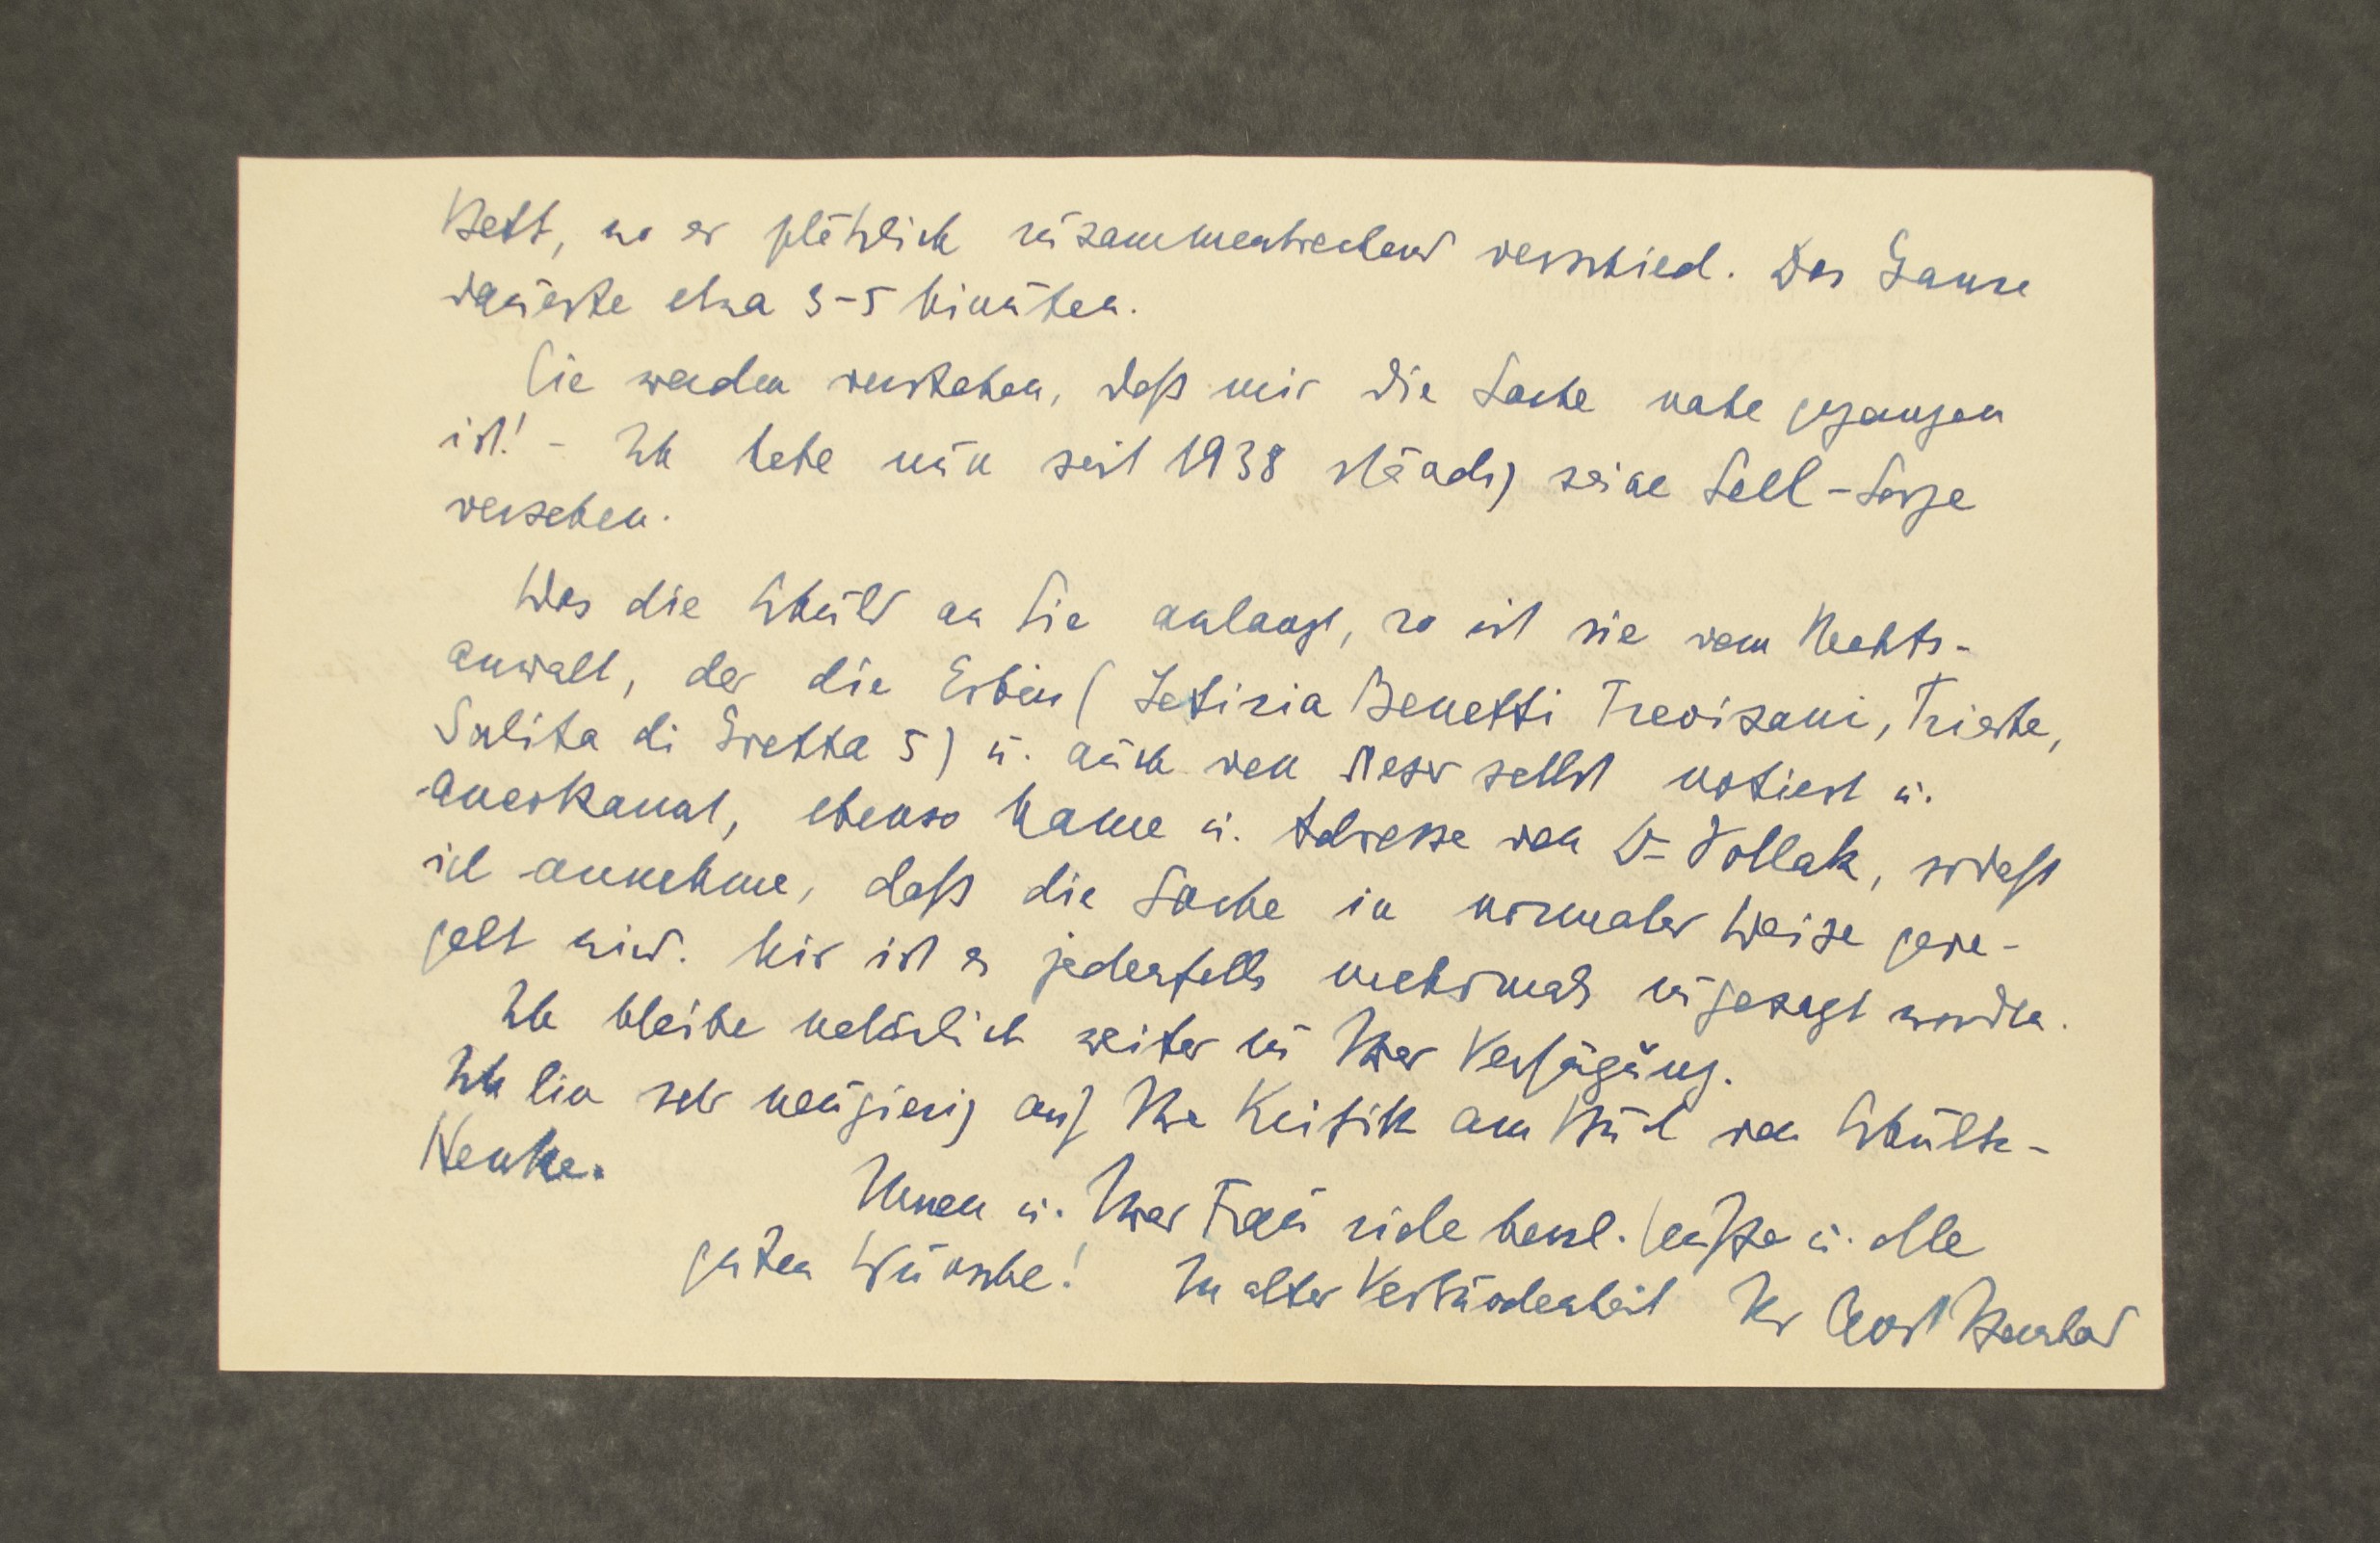 Bett, wo er plötzlich zusammenbrechend verschied. Das Ganze
dauerte etwa 3-5 Minuten.
Sie werden verstehen, daß mir die Sache nahe gegangen
ist! - Ich habe nun seit 1938 ständig seine Seel-Sorge
versehen.
Was die Schuld an Sie anlangt, so ist sie vom Rechts-
anwalt, der die Erbin (Letizia Benetti Trevisani, Trieste,
Salita di Gretta 5) u. auch von selbst notiert u.
anerkannt, ebenso Name u. Adresse von Dr Pollak, sodaß
ich annehme, daß die Sache in normaler Weise gere-
gelt wird. Mir ist es jedenfalls mehrmals zugesagt worden.
Ich bleibe natürlich weiter zu Ihrer Verfügung.
Ich bin sehr neugierig auf Ihre Kritik am Buch von Schultz-
Henke.
Ihnen u. Ihrer Frau viele herzl. Grüße u. alle
guten Wünsche! In alter Verbundenheit Ihr